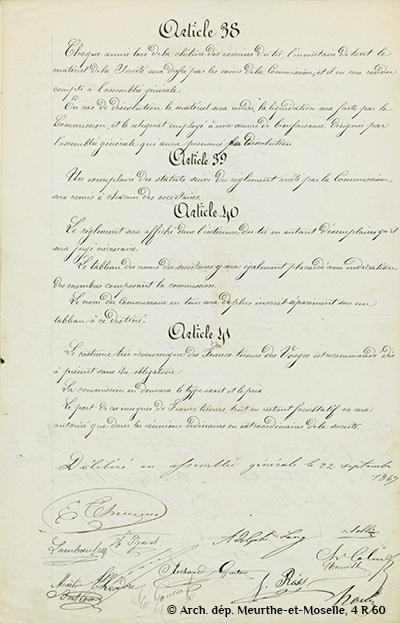 Article 38
Chaque année lors de la clôture des exercices du tir, l'inventaire de tout le
matériel de la Société sera dressé par les soins de la Commission, et il en sera rendu
compte à l'assemblée générale.
En cas de dissolution le matériel sera vendu, la liquidation sera faite par la
Commission, et le reliquat employé à une œuvre de bienfaisance désignée par
l'assemblée générale, qui aura prononcé la dissolution
Article 39
Un exemplaire des statuts suivi du règlement arrêté par la Commission
sera remis à chacun des sociétaires.
Article 40
Le règlement sera affiché dans l'intérieur du tir en autant d'exemplaires qu'il
sera jugé nécessaire.
Le tableau des noms des sociétaires y sera également placardé avec indication
des membres composant la commission.
Le nom du Commissaire en tour sera de plus inscrit séparément sur un
tableau à ce destiné.
Article 41
Le costume très économique des Francs tireurs des Vosges est recommandé dès
à présent sans être obligatoire.
La commission en donnera le type exact et le prix
Le port de ces insignes de Francs tireurs, tout en restant facultatif ne sera
autorisé que dans les réunions ordinaires ou extraordinaires de la société.
Délibéré en assemblée générale le 22 septembre
1867
Adolphe Lang
Richard
© Arch. dép. Meurthe-et-Moselle, 4 R 60